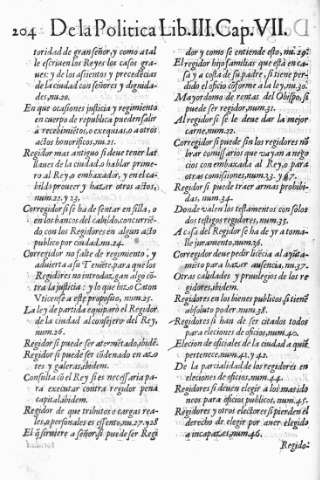 204 De la Politica Lib. III. Cap. VII.
toridad de gran señor, y como a tal
le escriuen los Reyes los casos gra-
ues: y de los assientos y precedēcias
de la ciudad con señores y dignida-
des, nu.20.
En que ocasiones justicia y regimiento
en cuerpo de republica pueden salir
a recebimiētos, o exequias, o a otros
actos honorificos, nu.21.
Regidor mas antiguo si deue tener las
llaues de la ciudad, o hablar prime-
ro al Rey, o embaxador, y en el ca-
bildo proueer y hazer otros actos,
num.22. y 23.
Corregidor si se ha de sentar en silla, o
en los bancos del cabildo, concurriē-
do con los Regidores en algun acto
publico por ciudad, nu.24.
Corregidor no falte de regimiento, y
aduierta a su Teniēte, para que los
Regidores no introduzgan algo cō-
tra la justicia: y lo que hizo Caton
Vticense a este proposito, num.25.
La ley de partida equiparò el Regidor
de la ciudad al consejero del Rey,
num.26.
Regidor si puede ser atormētado, ibidē.
Regidor si puede ser cōdenado en aço-
tes y galeras, ibidem.
Consulta cō el Rey si es necessaria pa-
ra executar contra regidor pena
capital, ibidem.
Regidor de que tributos o cargas rea-
les, o personales es essento, nu.27. y 28
El q̄ siruiere a señor, si puede ser Regi
dor y como se entiende esto, nu.29.
El regidor hijo familias que está en ca-
sa y a costa de su padre, si tiene per-
dido el oficio cōforme a la ley, nu.30.
Mayordomo de rentas del Obispo, si
puede ser regidor, num.31.
Al regidor si se le deue dar la mejor
carne, num.32.
Corregidor si puede sin los regidores nō
brar comissarios que vayan a nego
cios con embaxada al Rey, o para
otras comissiones, num.33. y 47.
Regidor si puede traer armas prohibi-
das, num.34.
Donde valen los testamentos con solos
dos testigos regidores, num.35.
A casa del Regidor se ha de yr a toma-
lle juramento, num.36.
Corregidor deue pedir licēcia al ayūta-
miēto para hazer ausencia, nu.37.
Otras calidades y priuilegios de los re
gidores, ibidem.
Regidores en los bienes publicos, si tienē
absoluto poder, num.38.
Regidores si han de ser citados todos
para elecciones de oficios, nu.40.
Elecion de oficiales de la ciudad a quiē
pertenece, nu.41. y 42.
De la parcialidad de los regidores en
elecciones de oficios, nu.44.
Regidores si deuen elegir a los mas ido
neos para oficios publicos, nu.45.
Regidores y otros electores si pierden el
derecho de elegir por auer elegido
a incapazes, num.46.
Regido-